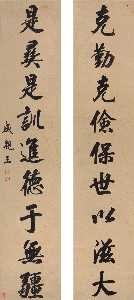 克勤克儉保世以滋大
是彝是訓進德于無疆
成親王